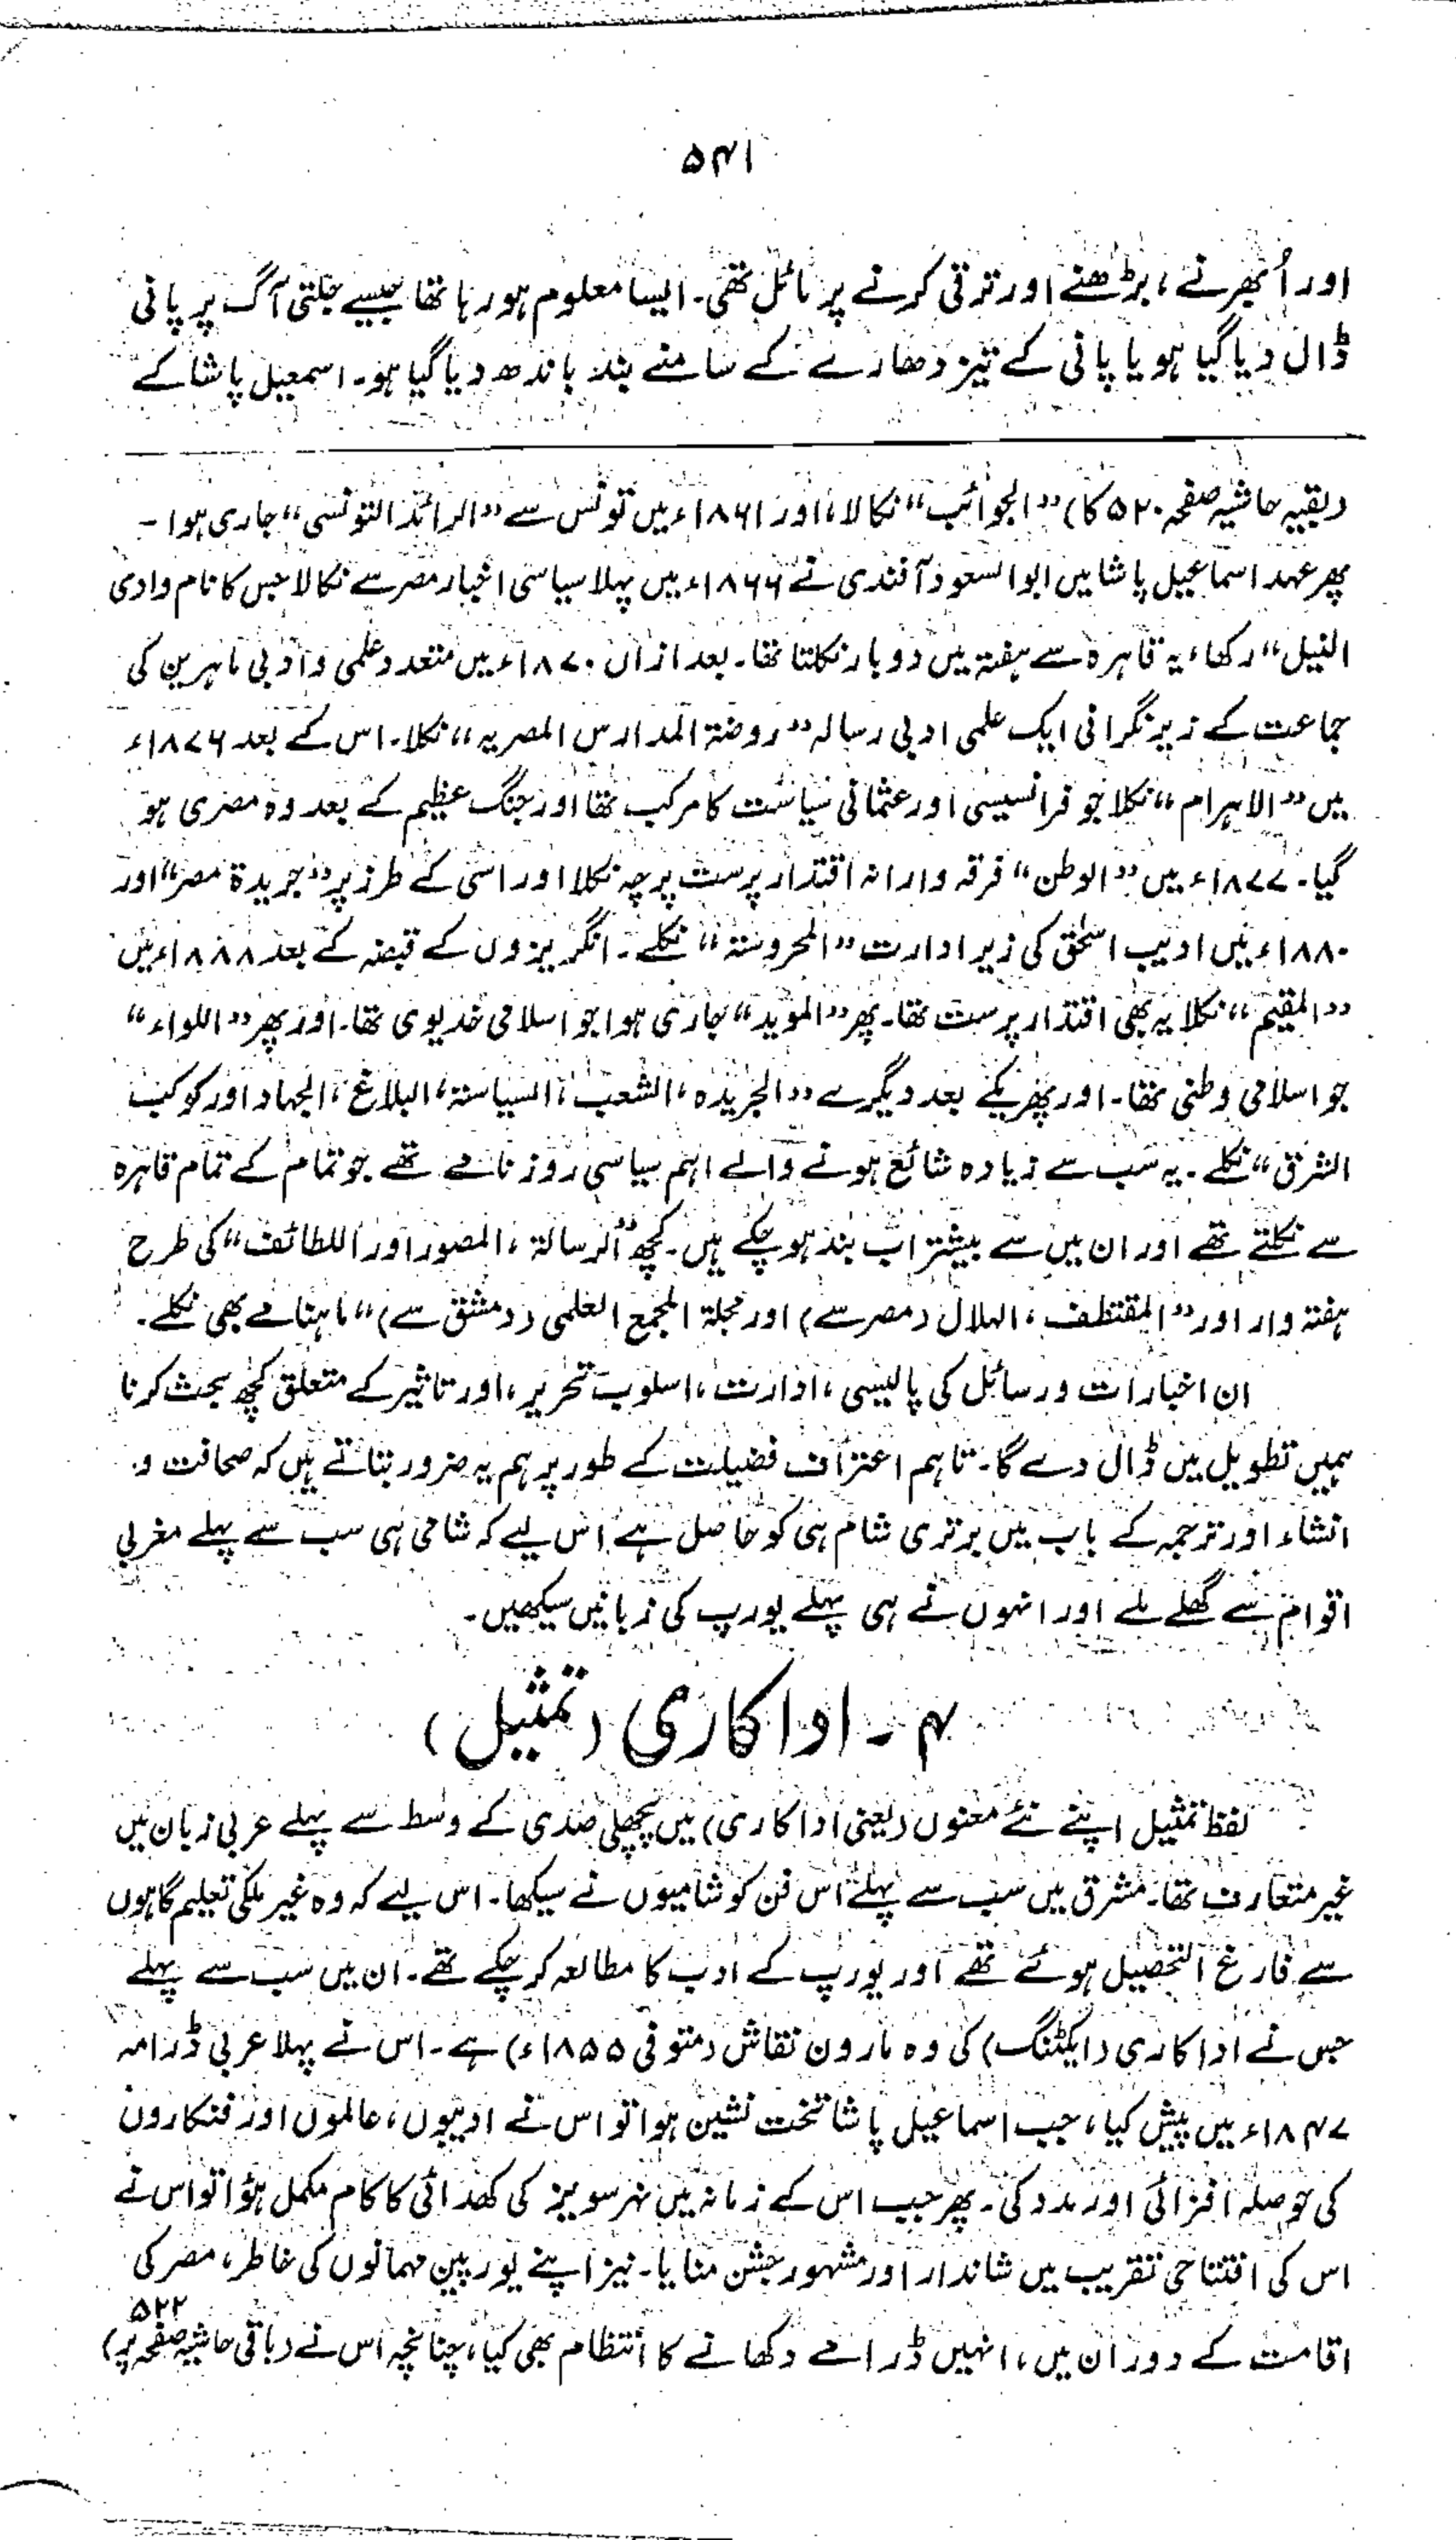 ۵۴۱
اور اُبھرنے، بڑھنے اور ترقی کرنے پر مائل تھی۔ ایسا معلوم ہو رہا تھا جیسے جلتی آگ پر پانی
ڈال دیا گیا ہو یا پانی کے تیز دھارے کے سامنے بند باندھ دیا گیا ہو۔ اسمعیل پاشا کے
(بقیہ حاشیہ صفحہ ۵۲۰ کا) ”الجوائب“ نکالا، اور ۱۸۶۱ء میں تونس سے ”الرائد التونسی“ جاری ہوا۔
پھر عہد اسماعیل پاشا میں ابوالسعود آفندی نے ۱۸۶۶ء میں پہلا سیاسی اخبار مصر سے نکالا جس کا نام وادی
النیل“ رکھا، یہ قاہرہ سے ہفتہ میں دو بار نکلتا تھا۔ بعد ازاں ۱۸۷۰ء میں متعدد علمی و ادبی ماہرین کی
جماعت کے زیر نگرانی ایک علمی ادبی رسالہ ”روضۃ المدارس المصریہ“ نکلا۔ اس کے بعد ۱۸۷۶ء
میں ”الاہرام“ نکلا جو فرانسیسی اور عثمانی سیاست کا مرکب تھا اور جنگ عظیم کے بعد وہ مصری ہو
گیا۔ ۱۸۷۷ء میں ”الوطن“ فرقہ وارانہ اقتدار پرست پرچہ نکلا اور اسی کے طرز پر ”جریدۃ مصر“ اور
۱۸۸۰ء میں ادیب اسحٰق کی زیر ادارت ”المحروسۃ“ نکلے۔ انگریزوں کے قبضہ کے بعد ۱۸۸۸ء میں
”المقیم“ نکلا یہ بھی اقتدار پرست تھا۔ پھر ”الموید“ جاری ہوا جو اسلامی خدیوی تھا۔ اور پھر ”اللواء“
جو اسلامی وطنی تھا۔ اور پھر یکے بعد دیگرے ”الجریدہ، الشعب، السیاستہ، البلاغ، الجہاد اور کوکب
الشرق“ نکلے۔ یہ سب سے زیادہ شائع ہونے والے اہم سیاسی روزنامے تھے جو تمام کے تمام قاہرہ
سے نکلتے تھے اور ان میں سے بیشتر اب بند ہو چکے ہیں۔ کچھ ”الرسالۃ، المصور اور اللطائف“ کی طرح
ہفتہ وار اور ”المقتطف، الہلال (مصر سے) اور مجلۃ المجمع العلمی (دمشق سے)“ ماہنامے بھی نکلے۔
ان اخبارات و رسائل کی پالیسی، ادارت، اسلوب تحریر، اور تاثیر کے متعلق کچھ بحث کرنا
ہمیں تطویل میں ڈال دے گا۔ تاہم اعتراف فضیلت کے طور پر ہم یہ ضرور بتاتے ہیں کہ صحافت و
انشاء اور ترجمہ کے باب میں برتری شام ہی کو حاصل ہے اس لیے کہ شامی ہی سب سے پہلے مغربی
اقوام سے گھلے ملے اور انہوں نے ہی پہلے یورپ کی زبانیں سیکھیں۔
۴۔ اداکاری (تمثیل)
لفظ تمثیل اپنے نئے معنوں (یعنی اداکاری) میں پچھلی صدی کے وسط سے پہلے عربی زبان میں
غیر متعارف تھا۔ مشرق میں سب سے پہلے اس فن کو شامیوں نے سیکھا۔ اس لیے کہ وہ غیر ملکی تعلیم گاہوں
سے فارغ التحصیل ہوئے تھے اور یورپ کے ادب کا مطالعہ کر چکے تھے۔ ان میں سب سے پہلے
جس نے اداکاری (ایکٹنگ) کی وہ مارون نقاش (متوفی ۱۸۵۵ء) ہے۔ اس نے پہلا عربی ڈرامہ
۱۸۴۷ء میں پیش کیا، جب اسماعیل پاشا تخت نشین ہوا تو اس نے ادیبوں، عالموں اور فنکاروں
کی حوصلہ افزائی اور مدد کی۔ پھر جب اس کے زمانہ میں نہر سویز کی کھدائی کا کام مکمل ہؤا تو اس نے
اس کی افتتاحی تقریب میں شاندار اور مشہور جشن منایا۔ نیز اپنے یورپین مہمانوں کی خاطر، مصر کی
اقامت کے دوران میں، انہیں ڈرامے دکھانے کا انتظام بھی کیا، چنانچہ اس نے (باقی حاشیہ صفحہ ۵۲۲ پر)